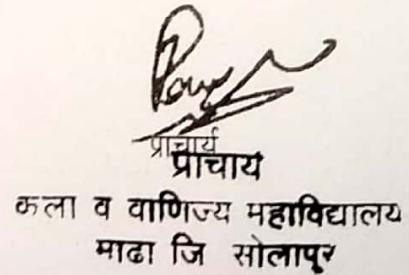 प्राचार्य
प्राचाय
कला व वाणिज्य महाविद्यालय
माढा जि सोलापूर